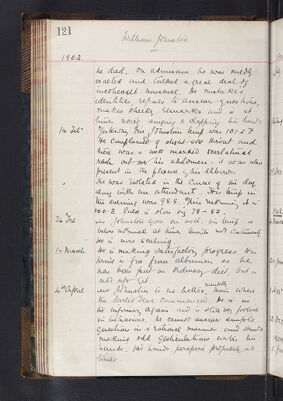 121
William Johnston
1902.
he died, on admission he was mildly
exalted and talked a great deal of
incoherent nonsense. He mistakes
identities refuses to answer questions,
makes cheeky remarks and is at
times noisy singing & clapping his hands
14 Feby
Yesterday Mr Johnston's temp was 101.2 F.
He complained of sore throat and
there was a well marked scarlatinal
rash out over his abdomen. it was also
present in the flexure of his elbows.
He was isolated in the course of the day
along with an attendant. His temp in
the evening was 98.8. This morning it is
100.2. Pulse is also up 78-82.
24 Feb
Mr Johnston goes on well, his temp is
below normal at times
He is now peeling.
1st March
He is making satisfactory progress. His
urine is free from albumen so he
has been put on ordinary diet, but is
not up yet.
4th April
Mr Johnston is no better, mentally than when
the Scarlet Fever commenced. He is in
the infirmary again and is still very foolish
in behaviour. He cannot answer simple
questions in a rational manner and stands
making odd gesticulations with his
hands. His hands perspire profusely at
times.